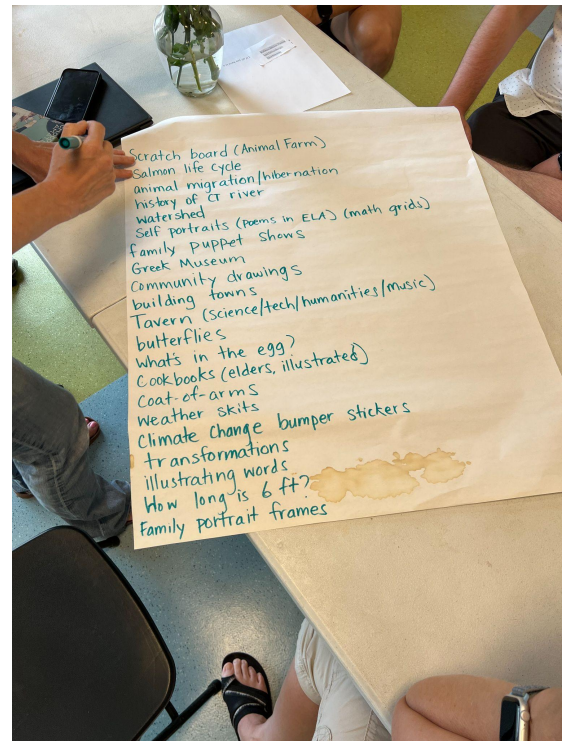 Scratch board (Animal Farm)
Salmon life cycle
animal migration/hibernation
history of CT river
watershed
Self portraits (poems in ELA) (math grids)
family puppet shows
Greek Museum
Community drawings
building towns
Tavern (science/tech/humanities/music)
butterflies
What's in the egg?
Cookbooks (elders, illustrated)
Coat-of-arms
Weather skits
Climate Change bumper stickers
transformations
illustrating words
How long is 6 ft?
Family portrait frames